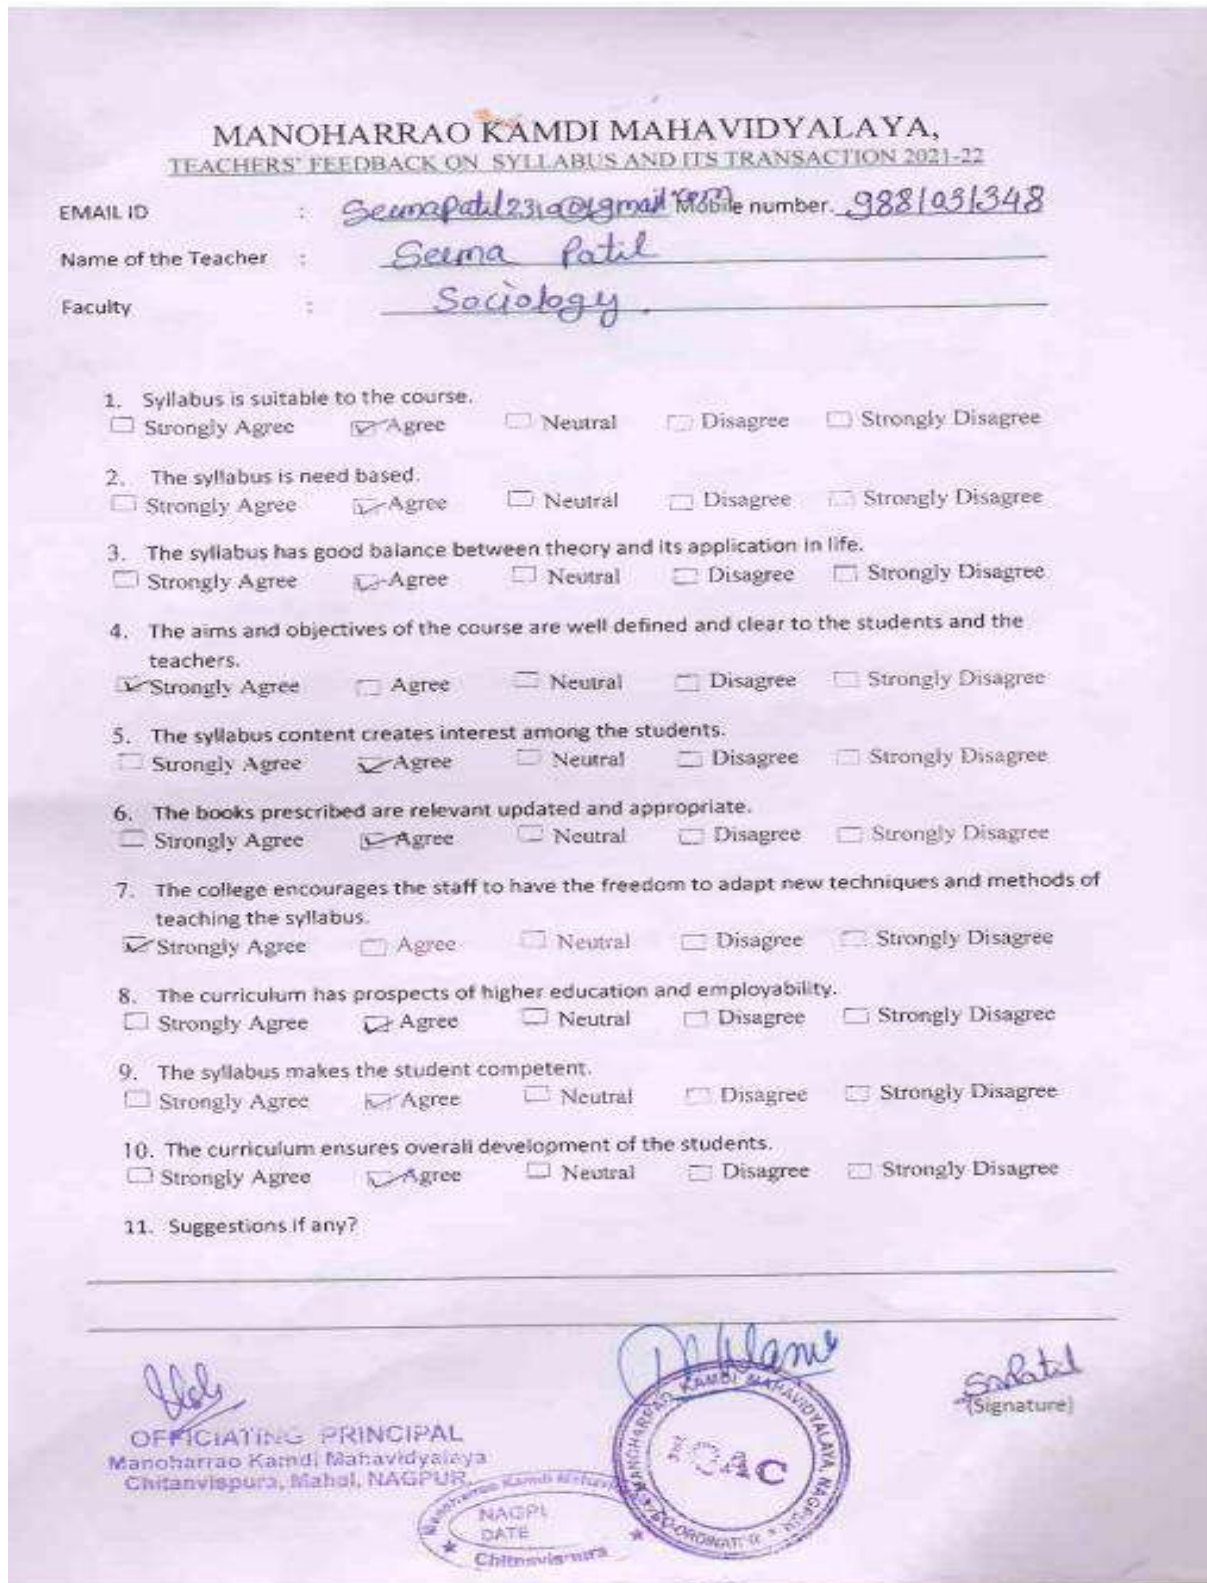 MANOHARRAO KAMDI MAHAVIDYALAYA,
TEACHERS' FEEDBACK ON SYLLABUS AND ITS TRANSACTION 2021-22
EMAIL ID : Mobile number. 9881031348
Name of the Teacher : Seema Patil
Faculty : Sociology.
1. Syllabus is suitable to the course.
Strongly Agree Agree Neutral Disagree Strongly Disagree
2. The syllabus is need based.
Strongly Agree Agree Neutral Disagree Strongly Disagree
3. The syllabus has good balance between theory and its application in life.
Strongly Agree Agree Neutral Disagree Strongly Disagree
4. The aims and objectives of the course are well defined and clear to the students and the
teachers.
Strongly Agree Agree Neutral Disagree Strongly Disagree
5. The syllabus content creates interest among the students.
Strongly Agree Agree Neutral Disagree Strongly Disagree
6. The books prescribed are relevant updated and appropriate.
Strongly Agree Agree Neutral Disagree Strongly Disagree
7. The college encourages the staff to have the freedom to adapt new techniques and methods of
teaching the syllabus.
Strongly Agree Agree Neutral Disagree Strongly Disagree
8. The curriculum has prospects of higher education and employability.
Strongly Agree Agree Neutral Disagree Strongly Disagree
9. The syllabus makes the student competent.
Strongly Agree Agree Neutral Disagree Strongly Disagree
10. The curriculum ensures overall development of the students.
Strongly Agree Agree Neutral Disagree Strongly Disagree
11. Suggestions if any?
(Signature)
OFFICIATING PRINCIPAL
Manoharrao Kamdi Mahavidyalaya
Chitanvispura, Mahal, NAGPUR.
MANOHARRAO KAMDI MAHAVIDYALAYA, NAGPUR
Manoharrao Kamdi
DATE